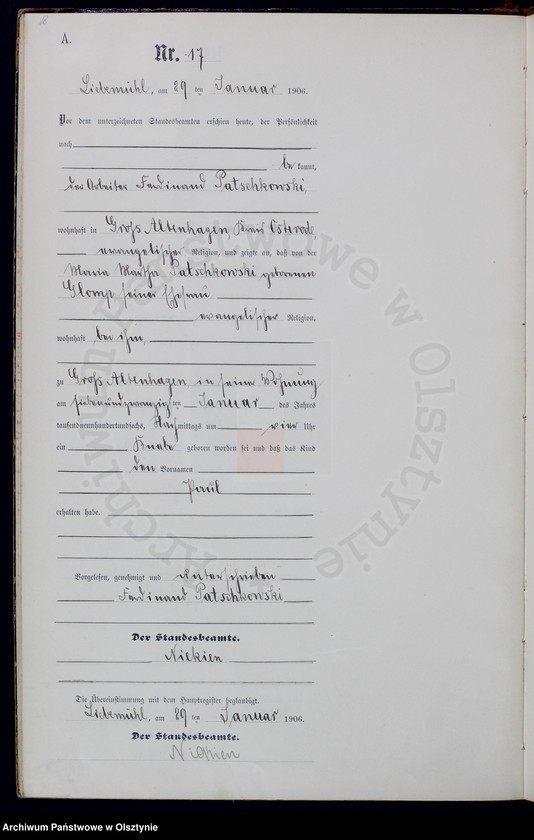 A.
Nr. 17
Liebemühl, am 29 ten Januar 1906.
Vor dem unterzeichneten Standesbeamten erschien heute, der Persönlichkeit
nach
be kannt,
der Arbeiter Ferdinand Patschkowski,
wohnhaft in Groß Altenhagen, Kreis Osterode
evangelischer Religion, und zeigte an, daß von der
Maria Martha Patschkowski geborenen
Glomp, seiner Ehefrau,
evangelischer Religion,
wohnhaft bei ihm,
zu Groß Altenhagen, in seiner Wohnung
am siebenundzwanzig ten Januar des Jahres
tausendneunhundertundsechs, Nachmittags um vier Uhr
ein Knabe geboren worden sei und daß das Kind
den Vornamen
Paul
erhalten habe.
Vorgelesen, genehmigt und unterschrieben
Ferdinand Patschkowski
Der Standesbeamte.
Niekien
Die Übereinstimmung mit dem Hauptregister beglaubigt.
Liebemühl, am 29 ten Januar 1906.
Der Standesbeamte.
Niekien
Archiwum Państwowe w Olsztynie
Archiwum Państwowe w Olsztynie